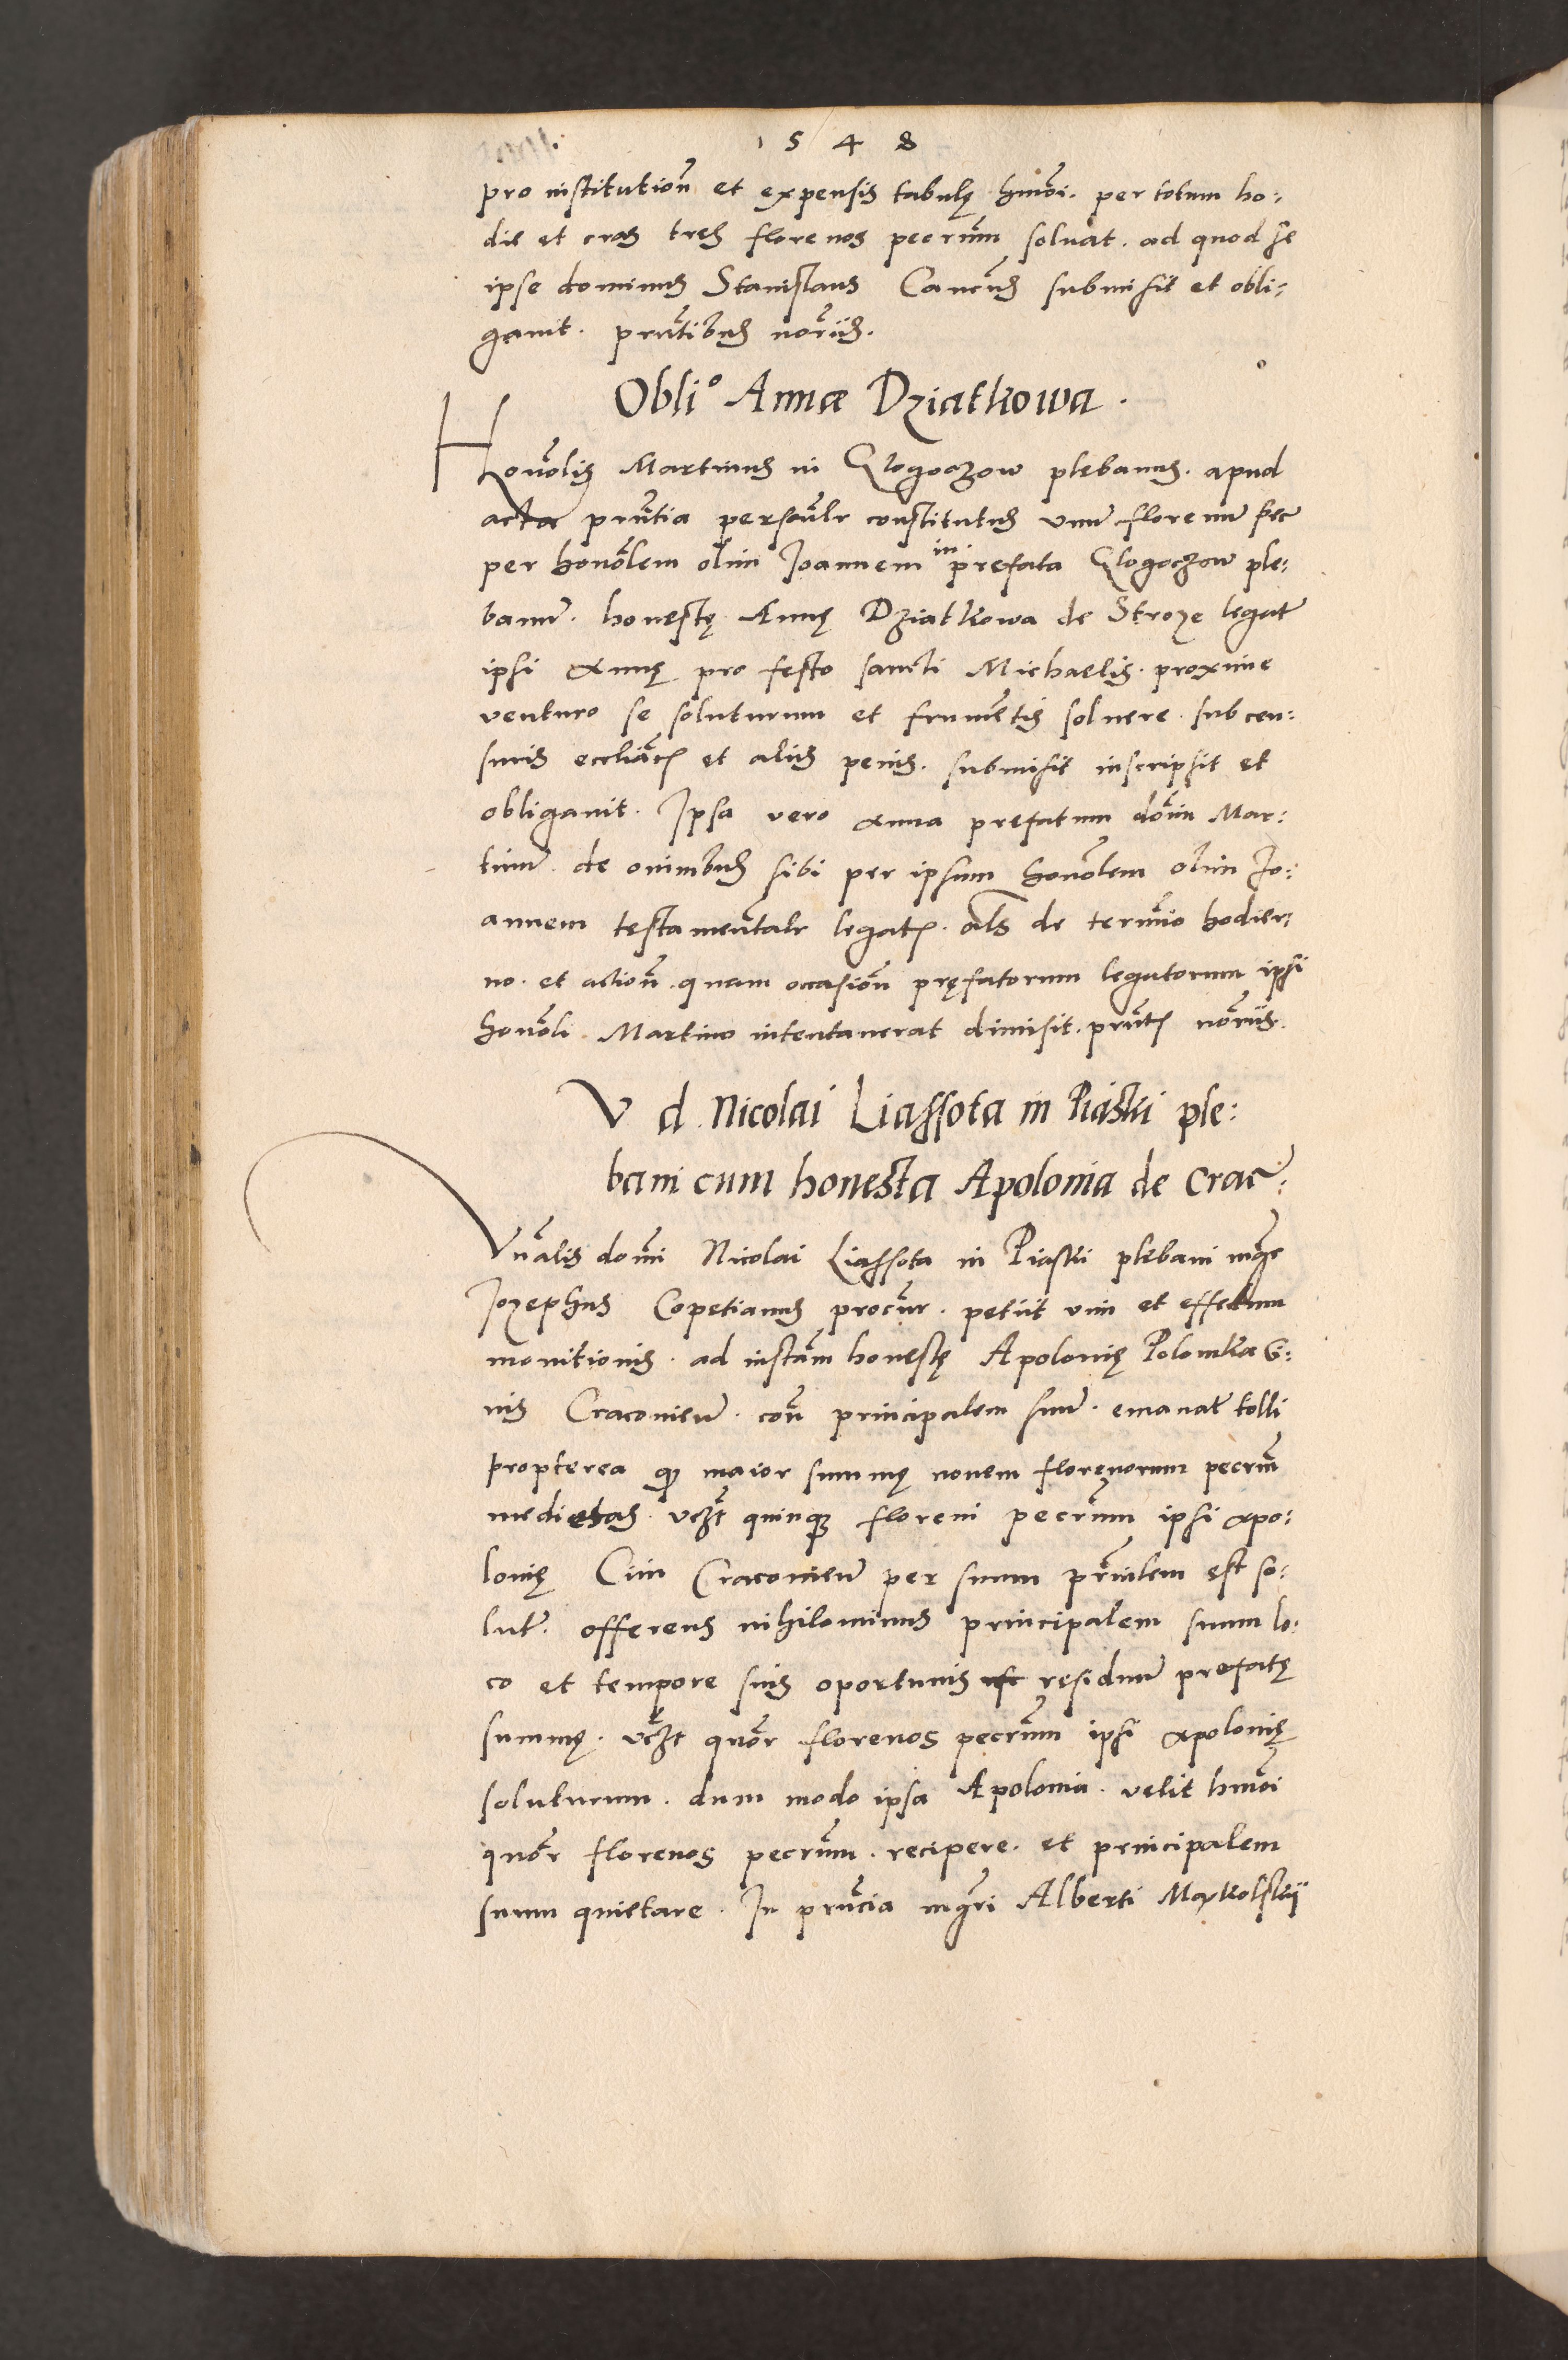 1548
pro institution̄ et expensis tabulę hmōi. per totum ho:
die et cras tres florenos pecrūm soluat. ad quod se
ipse dominus Stanislaus submisit et obli:
gauit. pn̄tibus nōriis.
Obli° Annæ Dziatkowa.
Honōlis Martinus in Glogoczow plebanus. apud
acta pn̄tia persoālr constitutus unū florenū
per honōlem olim Joannem in prefata Glogoczow ple:
banū. honestę Annę Dziatkowa de Stroze legatū
ipsi Annę pro festo sancti Michaelis. proxime
venturo se soluturum et frumētis soluere. sub cen:
suris eccliāc et aliis penis. submisit inscripsit et
obligauit. Ipsa vero Anna prefatum dōm Mar:
tinū. de omnibus sibi per ipsum honōlem olim Jo:
annem testamentālr legatis. als de termīo hodier:
no. et action̄. quam occasion̄ pręfatorum legatorum ipsi
honōli Martino intentauerat dimisit. pn̄t nōriis.
V d. Nicolai Liassota in Piaski ple:
bani cum honesta Apolonia de Crac̄:
Vn̄alis domī Nicolai Liassota in Piaski plebani mgr̄
Jozephus Copetianus procūr. petiit vim et effectum
monitionis. ad instām honestę Apolonię Polomka Ci:
uis Cracouieñ. con̄ principalem suū. emanat̄ tolli
propterea qꝫ maior summę nouem florenorum pecrūm
medietas. vcꝫt quinqꝫ floreni pecrūm ipsi Apo:
lonię Ciui Cracouieñ per suum prīnlem est so:
lut̄. offerens nihilominus principalem suum lo:
co et tempore suis oportunis residuū prefatę
summę. vcꝫt quōr florenos pecrūm ipsi Apolonię
soluturum. dum modo ipsa Apolonia. velit hmōi
quōr florenos pecrūm. recipere. et principalem
suum quietare. In pn̄cia mgr̄i Alberti Maykolskij